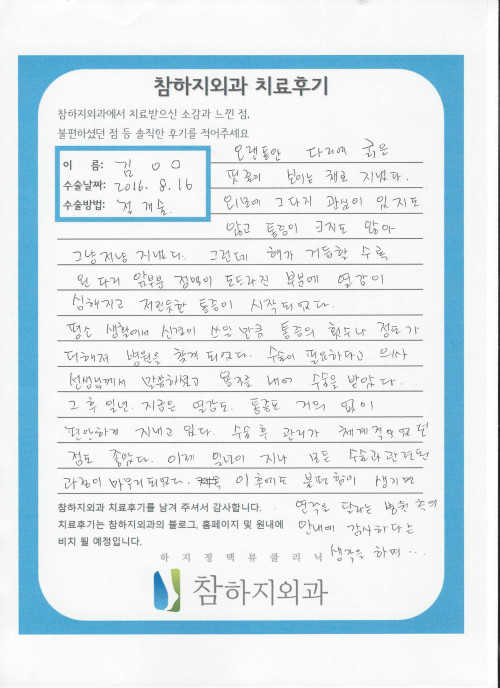 참하지외과 치료후기
참하지외과에서 치료받으신 소감과 느낀 점,
불편하셨던 점 등 솔직한 후기를 적어주세요
이 름: 김 ㅇㅇ
수술날짜: 2016. 8. 16
수술방법: 정 개술
오랫동안 다리에 굵은
핏줄이 보이는 채로 지냈다.
외모에 그다지 관심이 있지도
않고 통증이 크지도 않아
그냥저냥 지냈다. 그런데 해가 거듭할 수록
왼 다리 앞부분 정맥이 도드라진 부분에 열감이
심해지고 저린듯한 통증이 시작되었다.
평소 생활에서 신경이 쓰일 만큼 통증의 횟수나 정도가
더해져 병원을 찾게 되었다. 수술이 필요하다고 의사
선생님께서 말씀하셨고 용기를 내어 수술을 받았다.
그 후 일년. 지금은 열감도, 통증도 거의 없이
편안하게 지내고 있다. 수술 후 관리가 체계적이었던
점도 좋았다. 이제 일년이 지나 모든 수술과 관련된
과정이 마무리되었다. 이후에도 불편함이 생기면
연락을 달라는 병원 측의
안내에 감사하다는
생각을 하며...
참하지외과 치료후기를 남겨 주셔서 감사합니다.
치료후기는 참하지외과의 블로그, 홈페이지 및 원내에
비치 될 예정입니다.
하지정맥류클리닉
참하지외과